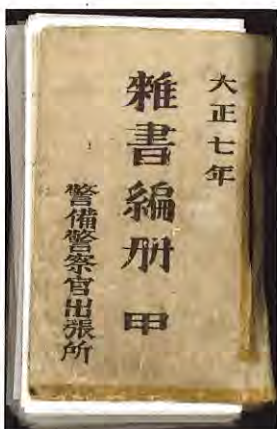 大正七年
雜書編册 甲
警備警察官出張所